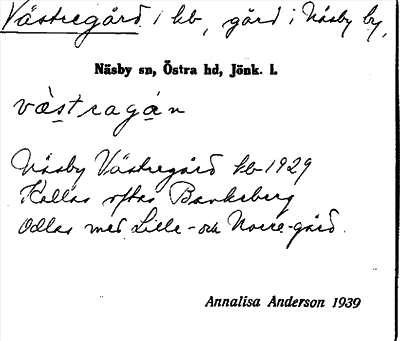 Västregård 1 kb, gård i Näsby by,
Näsby sn, Östra hd, Jönk. l.
våstragån
Näsby Västregård kb 1929
Kallas oftas Banksberg
Odlas med Lille- och Norregård.
Annalisa Anderson 1939